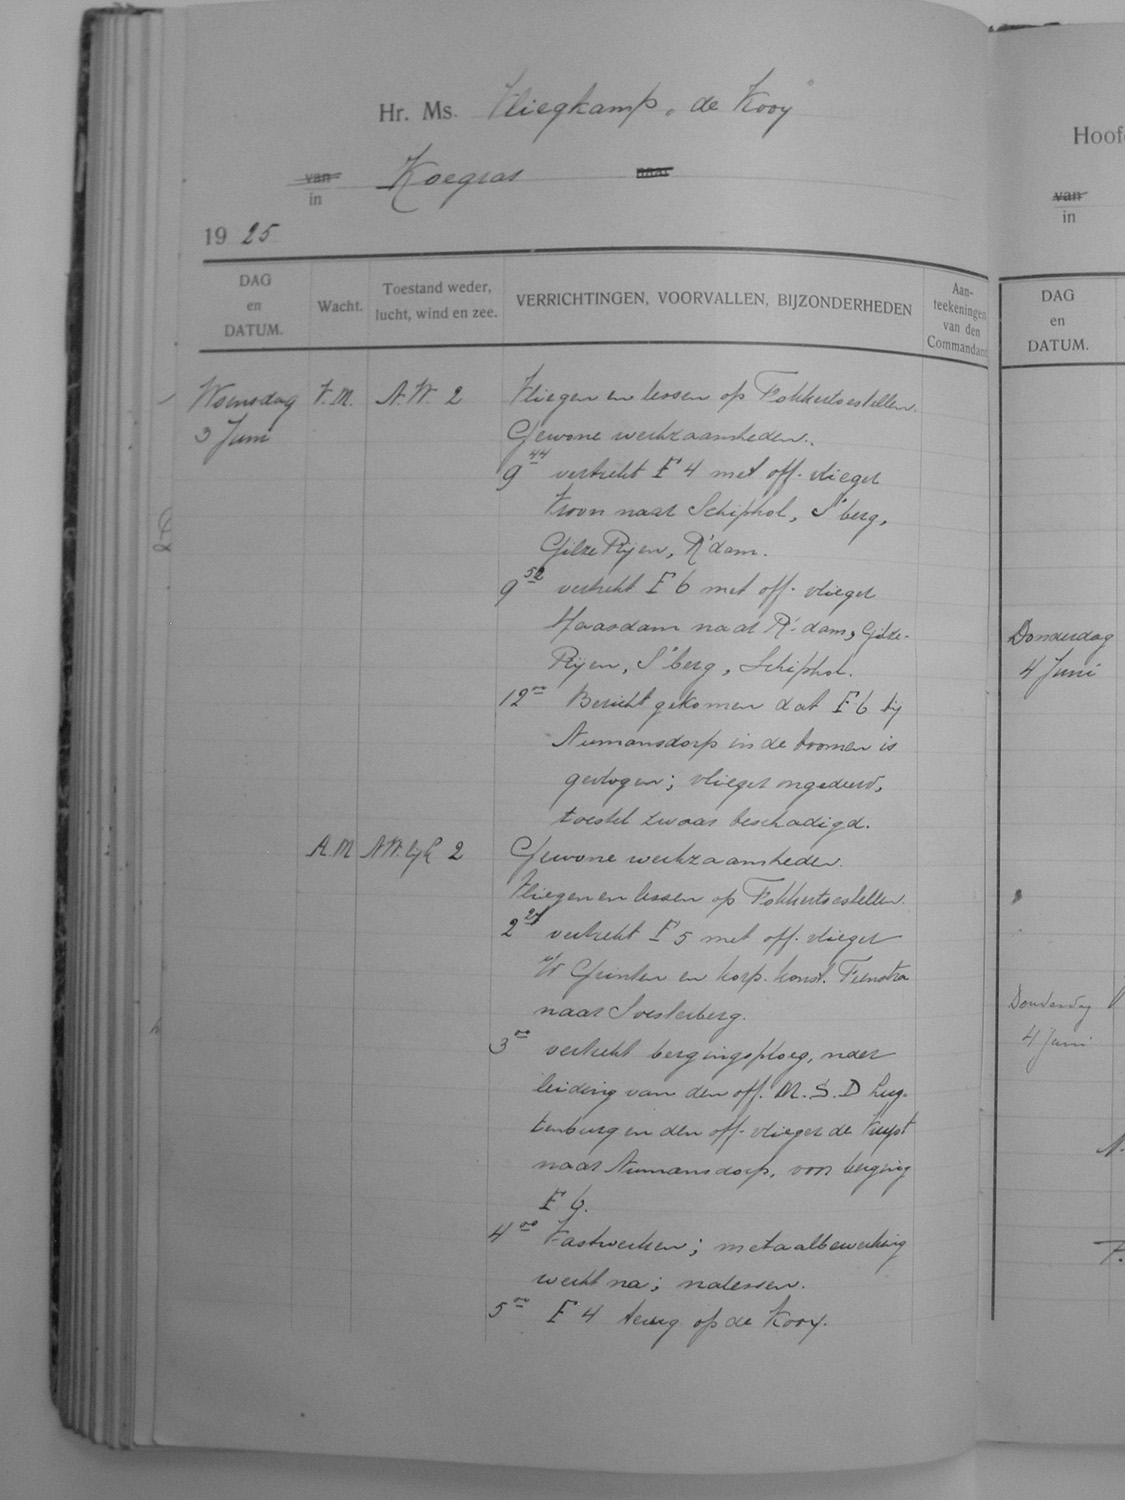 Hr. Ms. Vliegkamp „de Kooy"
van Koegras naar
in
1925
DAG en DATUM. Wacht. Toestand weder, lucht, wind en zee. VERRICHTINGEN, VOORVALLEN, BIJZONDERHEDEN Aan-teekeningen van den Commandant
Woensdag V.M. N.W. 2 Vliegen en lessen op Fokkertoestellen.
3 Juni Gewone werkzaamheden.
9 44 vertrekt F 4 met off. vlieger
Kroon naar Schiphol, S'berg,
Gilze Rijen, R'dam.
9 52 vertrekt F 6 met off. vlieger
Maasdam naar R'dam, Gilze-
Rijen, S'berg, Schiphol.
12 00 Bericht gekomen dat F 6 bij
Numansdorp in de boomen is
gevlogen; vlieger ongedeerd,
toestel zwaar beschadigd.
A.M. 2 Gewone werkzaamheden.
Vliegen en lessen op Fokkertoestellen.
2 27 vertrekt F 5 met off. vlieger
en korp. konst. Feenstra
naar Soesterberg.
3 00 vertrekt bergingsploeg, onder
leiding van den off. M.S.D. Lug-
tenburg en den off. vlieger de
naar Numansdorp, voor berging
F 6.
4 00 Vastwerken; metaalbewerking
werkt na; nalessen.
5 00 F 4 terug op de Kooy.
Hoof
van
in
DAG
en
DATUM.
Donderdag
4 Juni
Donderdag
4 Juni